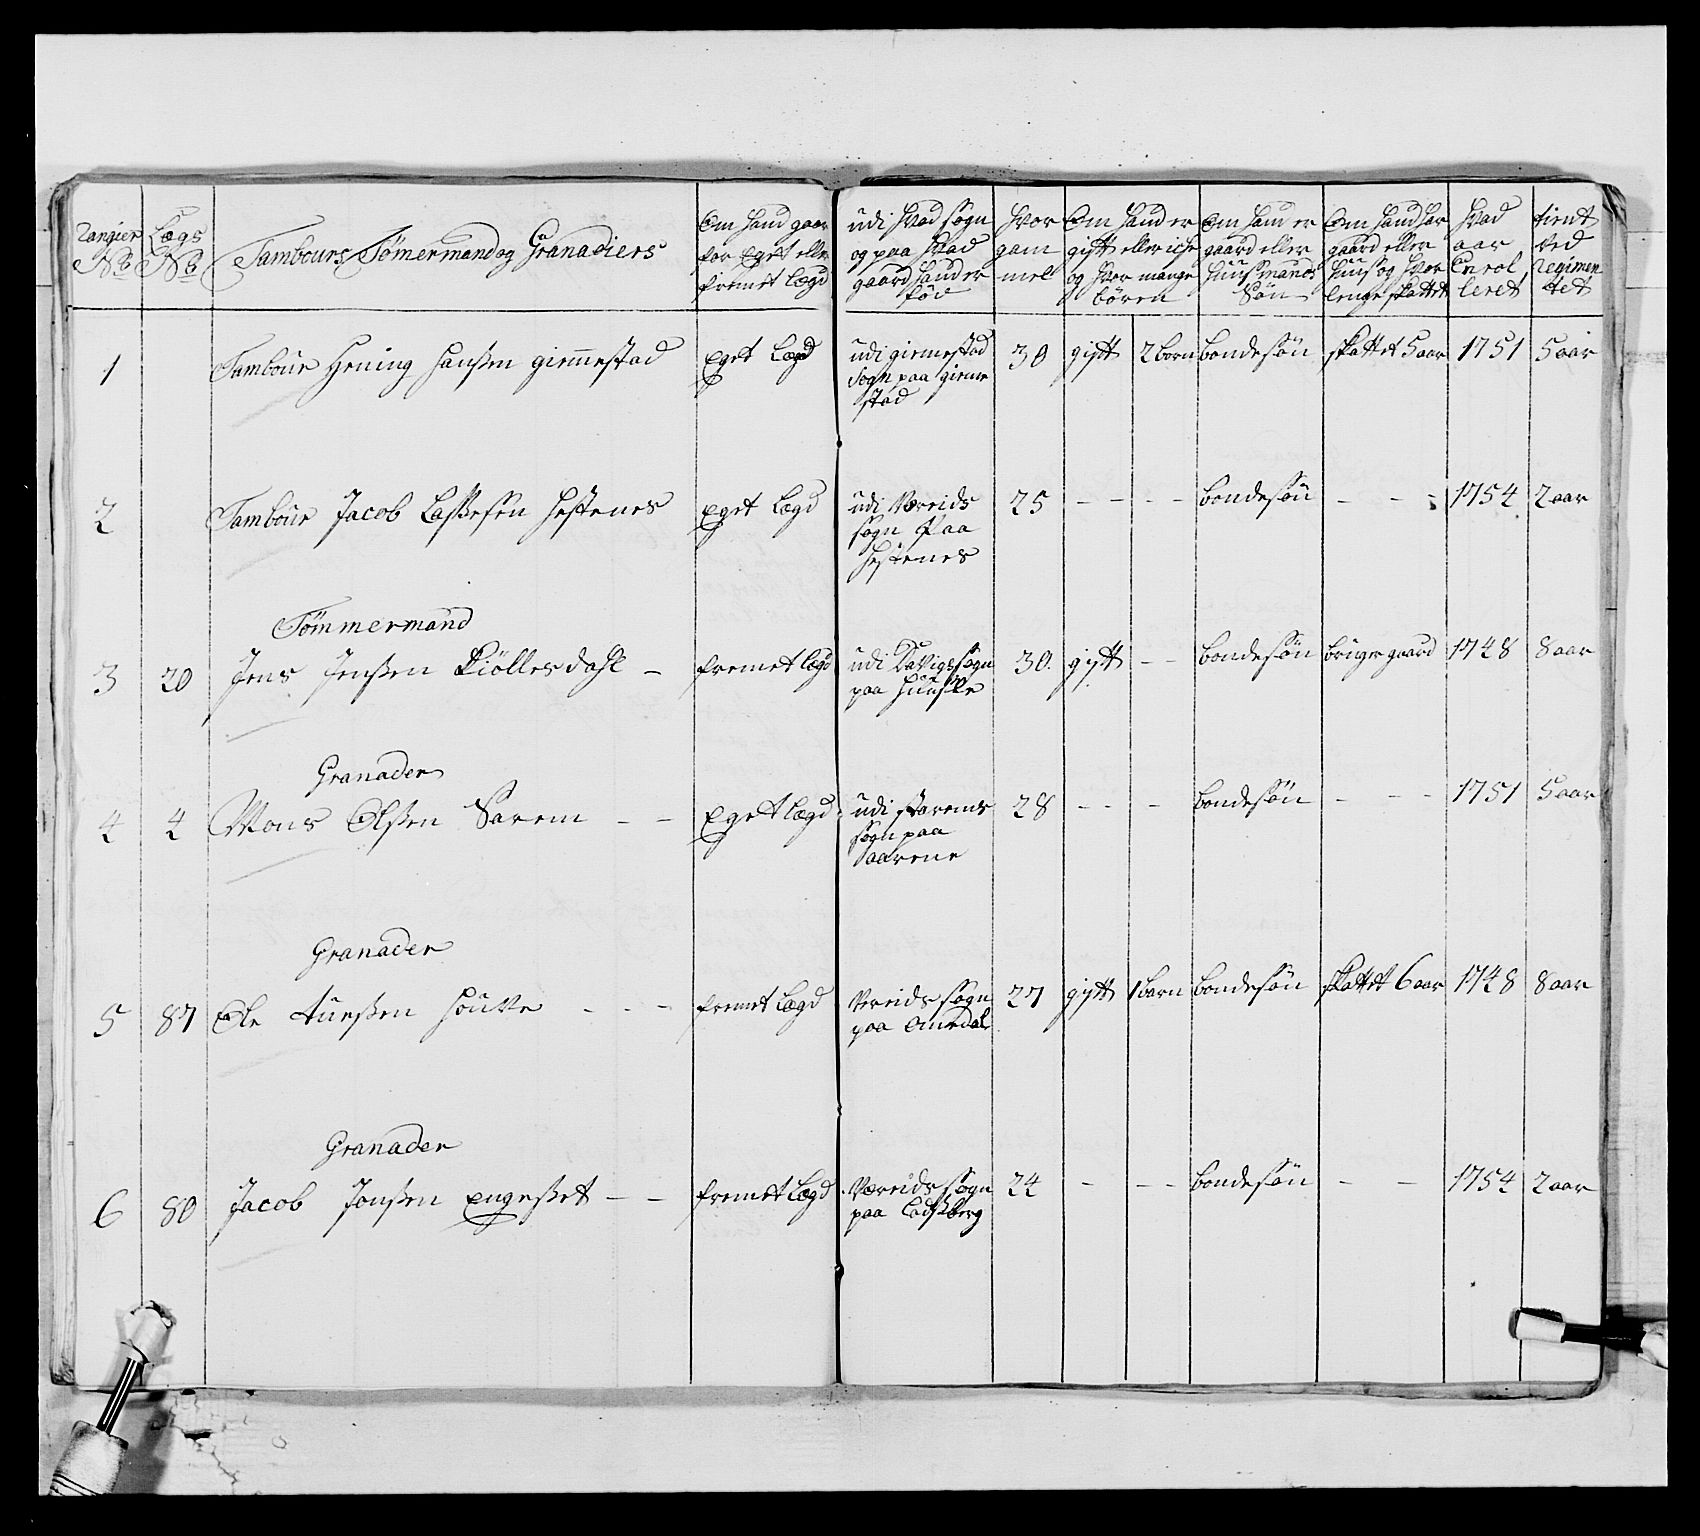 Rangier No
Lægs No
Tambours, Tømermand og Granadiers
Om hand gaar for eget eller fremet Lægd
udi hvad sogn og paa hvad gaard hand er fød
hvor gammel
Om hand er gift eller iche og hvor mange børen
Om hand er gaard eller huusmands Søn
Om hand har gaard eller huus og hvor lenge skattet
hvad aar Enrolleret
tient ved Regimentet
1 Tambour Hening Hanßen giemestad eget Lægd udi giemestad Sogn paa giemestad 30 gift 2 born bondesøn skattet 5 aar 1751 5 aar
2 Tambour Jacob Laßesen Hestenes eget Lægd udi Væreids sogn Paa Hestenes 25 - - - - bondesøn - - - 1754 2 aar
Tømmermand
3 20 Jens Jenßen Kiöllesdahl - fremet lægd udi Davigs sogn paa 30. gift - - bondesøn bruger gaard 1748 8 aar
Granader
4 4 Mons Olßen Sarem - - Eget Lægd udi sogn paa 28 - - - bondesøn - - - 1751 5 aar
Granader
5 87 Ole houve - - - fremet Lægd Vereids sogn paa Omedal 27 gift 1 barn bondesøn skattet 6 aar 1748 8 aar
Granader
6 80 Jacob Jonßen engeßet - - fremet Lægd Væreids sogn paa 24 - - - bondesøn - - 1754 2 aar